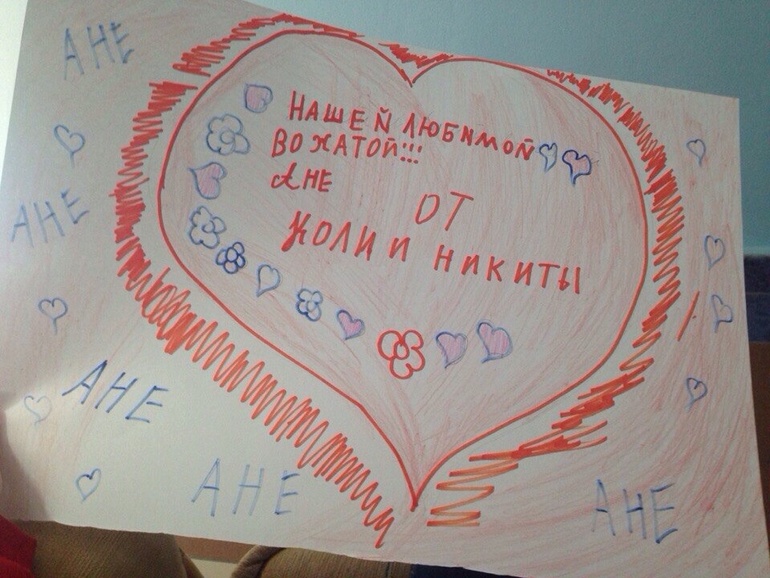 АНЕ
НАШЕЙ ЛЮБИМОЙ
ВОЖАТОЙ!!!
АНЕ
ОТ
КОЛИ И НИКИТЫ
АНЕ
АНЕ
АНЕ
АНЕ